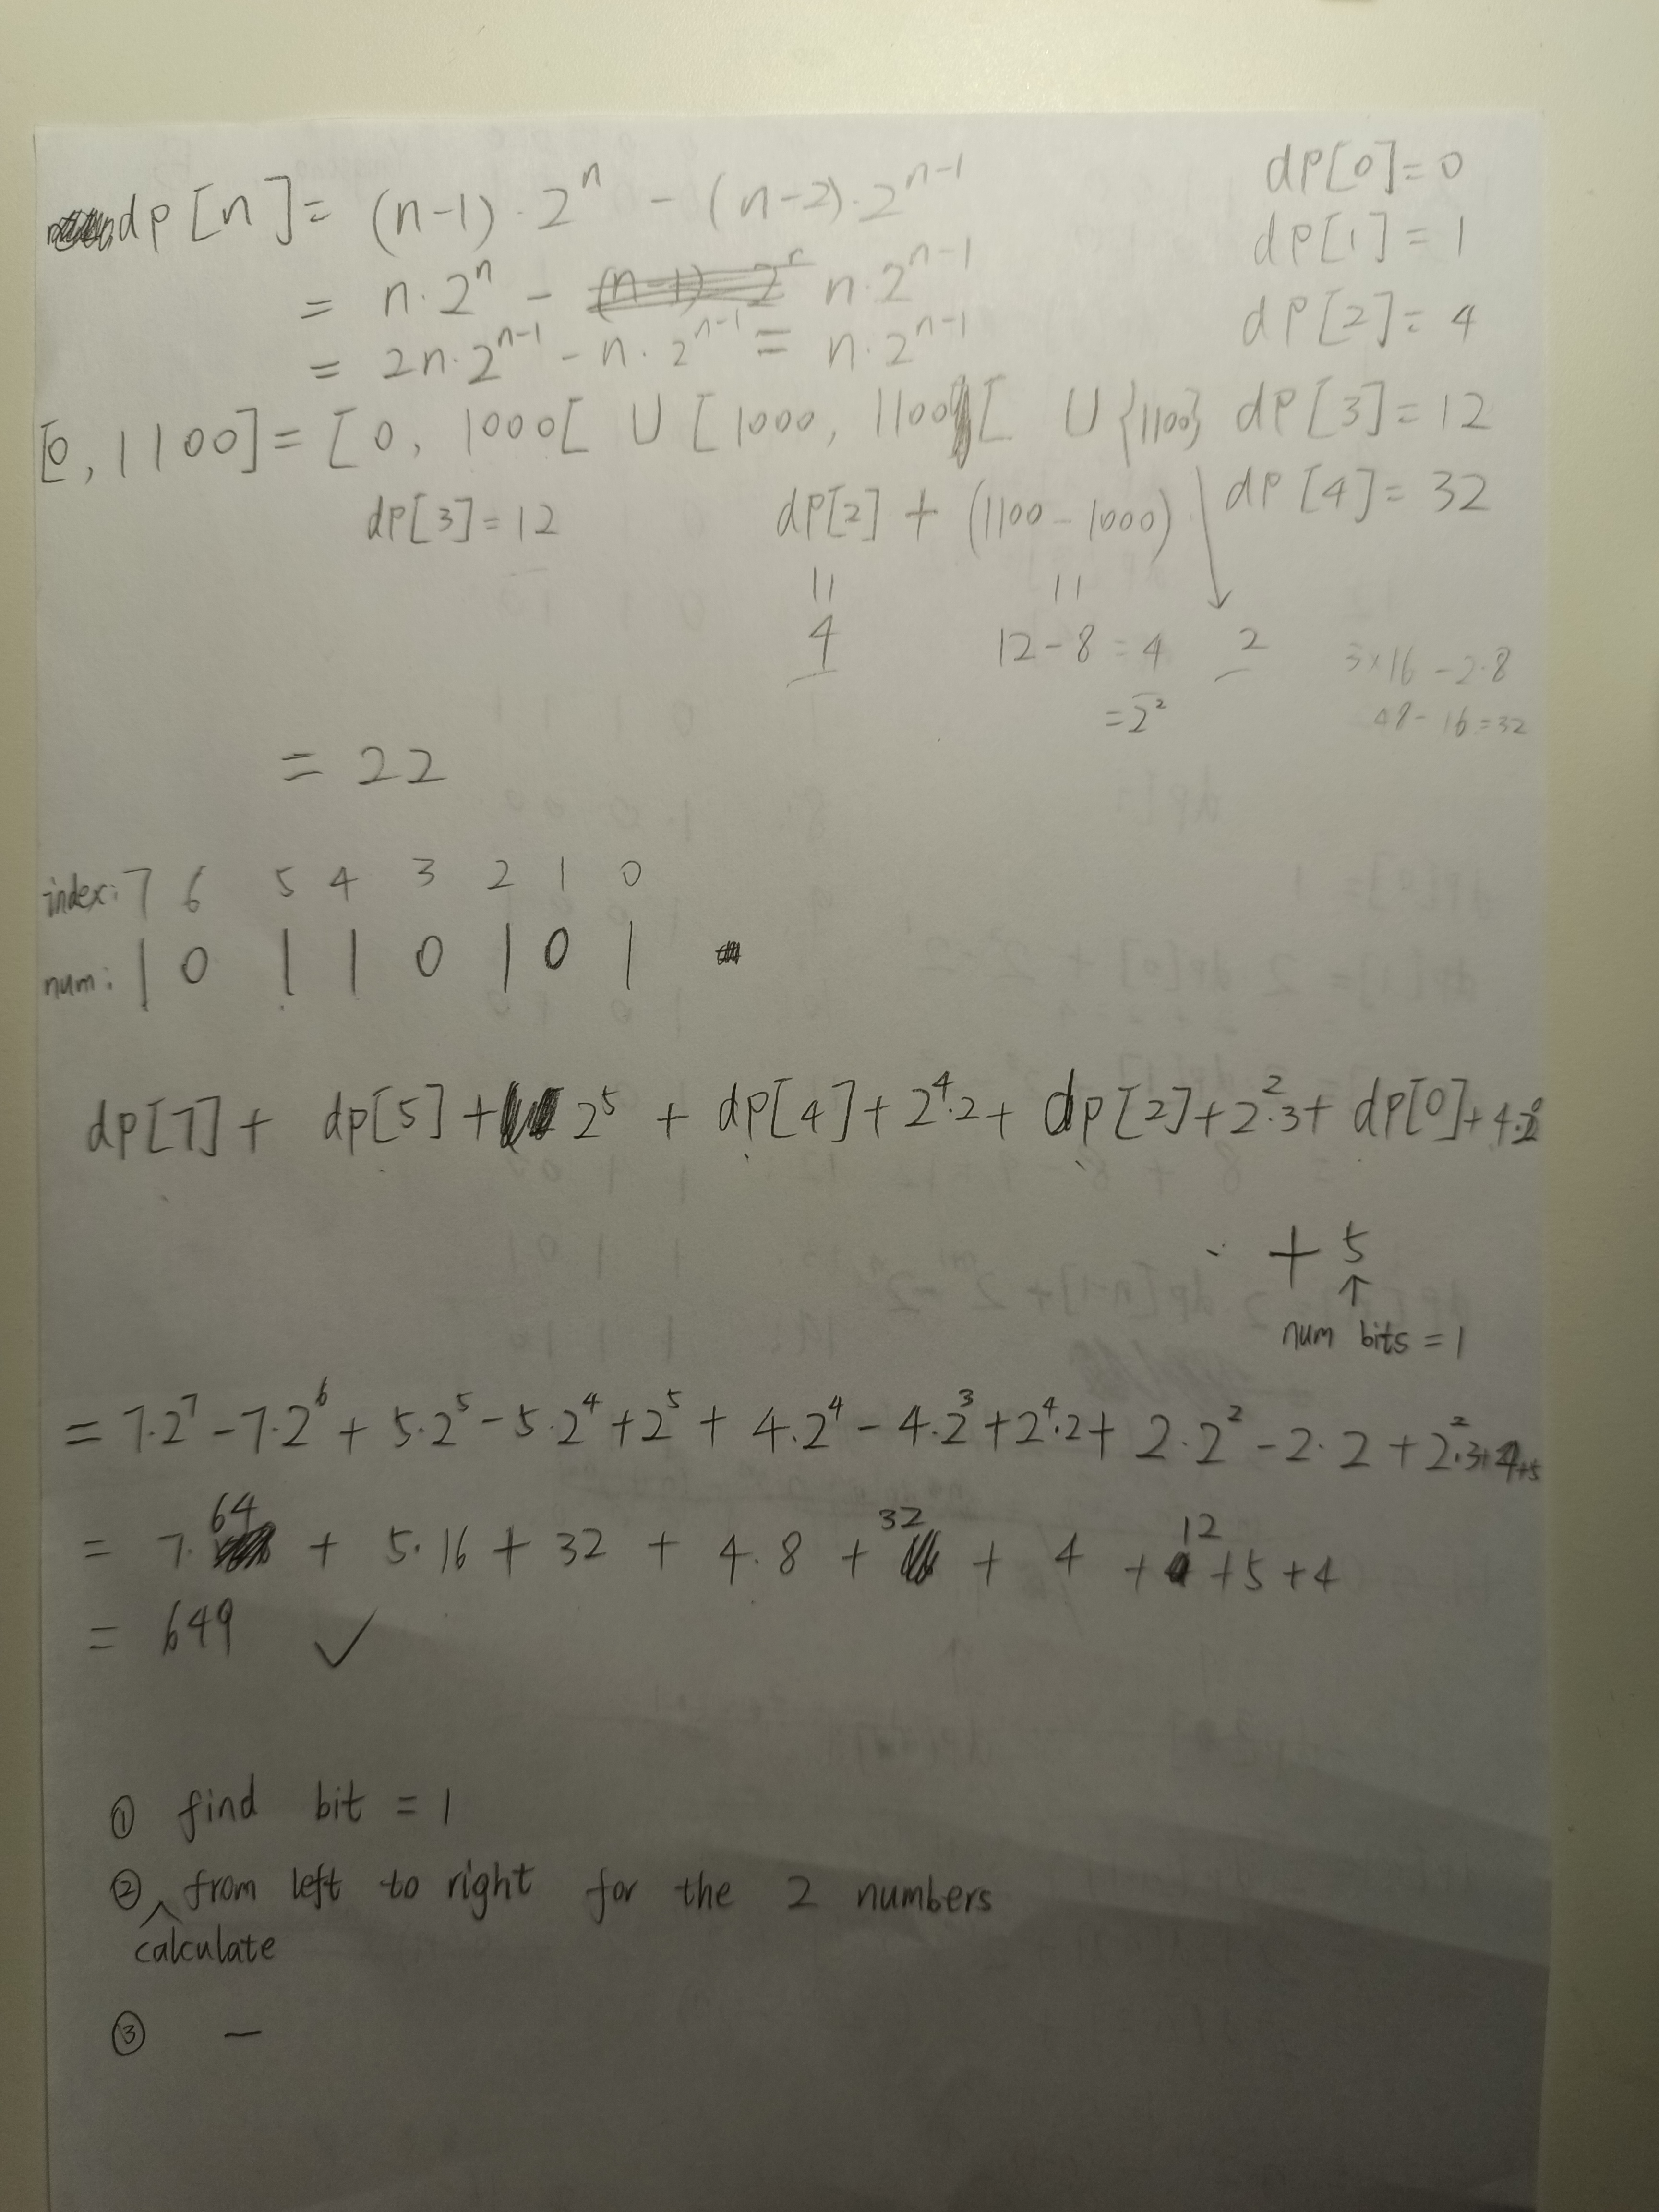 dp[n] = (n-1)·2^n - (n-2)·2^{n-1}
= n·2^n - n·2^{n-1}
= 2n·2^{n-1} - n·2^{n-1} = n·2^{n-1}
dp[0]=0
dp[1]=1
dp[2]=4
dp[3]=12
dp[4]=32
[0, 1100] = [0, 1000[ U [1000, 1100[ U {1100}
dp[3]=12
dp[2] + (1100-1000)
11 11
4 12-8=4 2
=2^2
3×16-2·8
48-16=32
= 22
index: 7 6 5 4 3 2 1 0
num: 1 0 1 1 0 1 0 1
dp[7] + dp[5] + 2^5 + dp[4] + 2^4·2 + dp[2] + 2^2·3 + dp[0] + 4·2^0
+ 5
↑
num bits = 1
= 7·2^7 - 7·2^6 + 5·2^5 - 5·2^4 + 2^5 + 4·2^4 - 4·2^3 + 2^4·2 + 2·2^2 - 2·2 + 2^2·3+4+5
= 7·64 + 5·16 + 32 + 4·8 + 32 + 4 + 12 + 5 + 4
= 649 ✓
① find bit = 1
② calculate from left to right for the 2 numbers
③ —